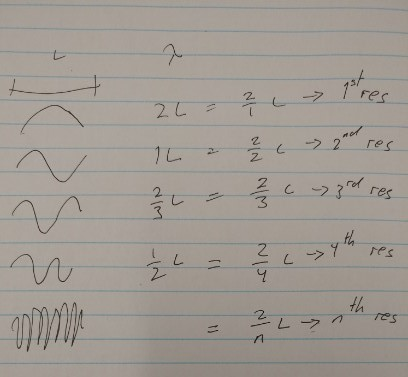 L λ
2L = 2/1 L → 1st res
1L = 2/2 L → 2nd res
2/3 L = 2/3 L → 3rd res
1/2 L = 2/4 L → 4th res
= 2/n L → nth res